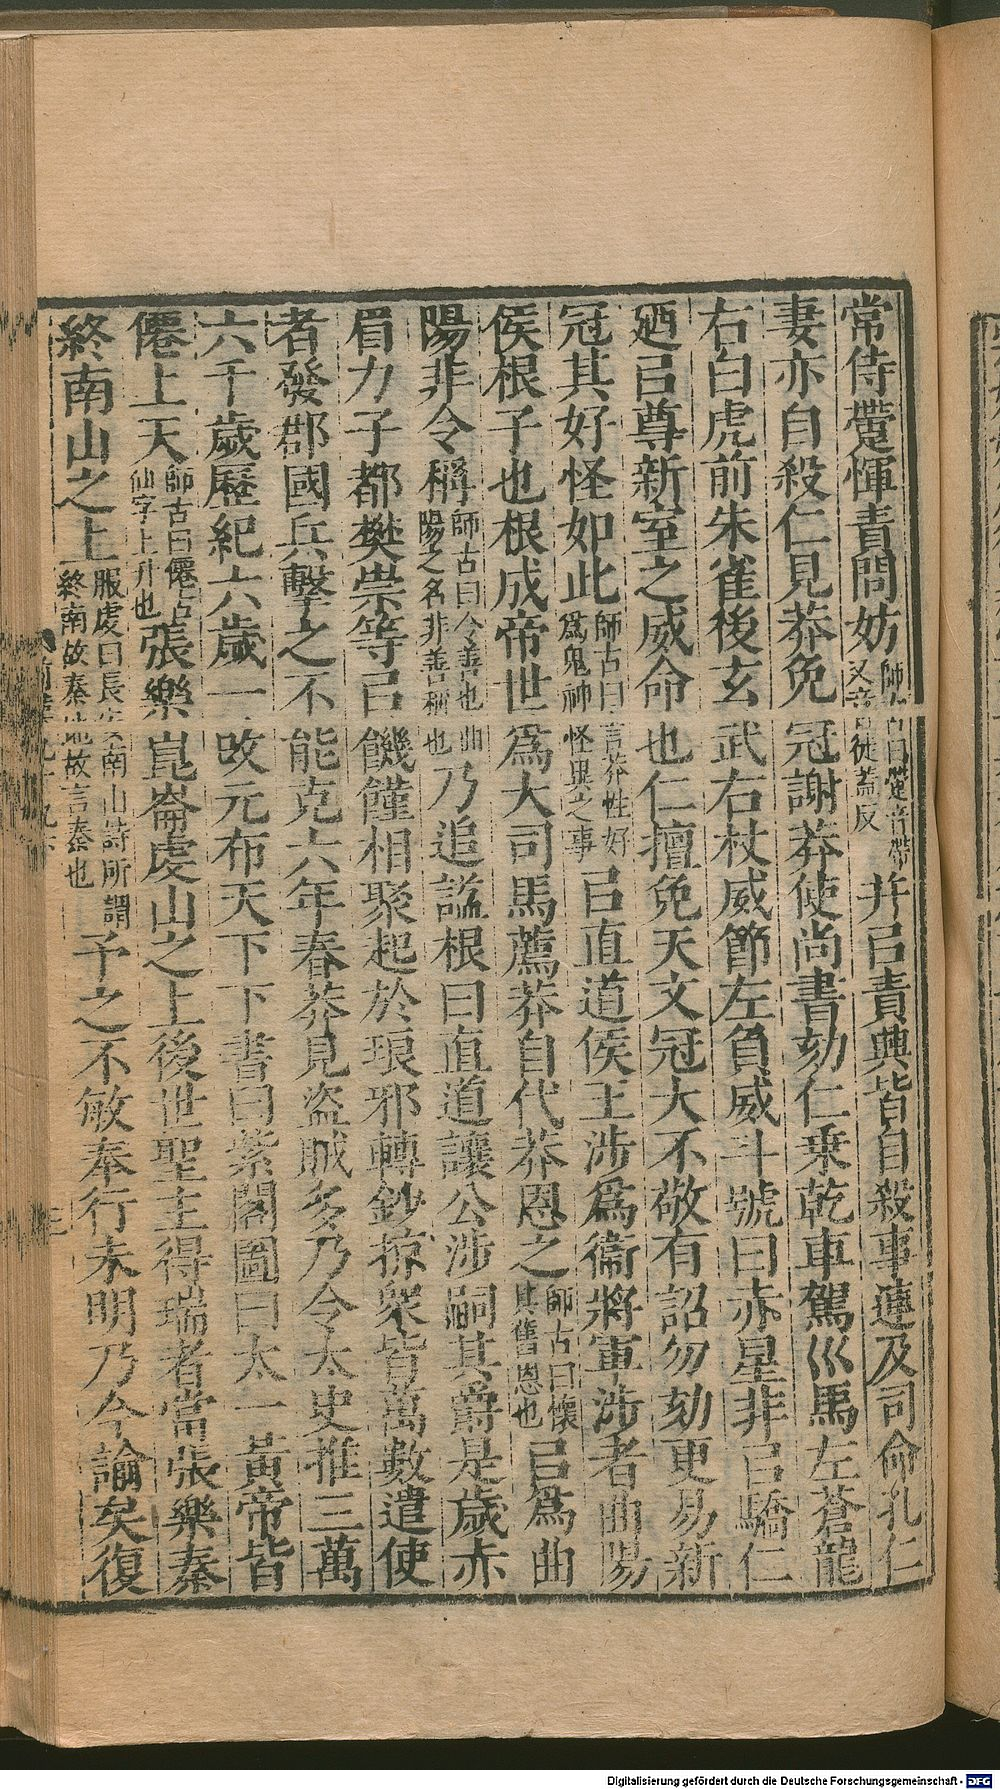 常侍䠠惲責問妨師古曰䠠音帶又音徒蓋反并㠯責興皆自殺事連及司命孔仁
妻亦自殺仁見莽免冠謝莽使尚書劾仁乗乾車駕巛馬左蒼龍
右白虎前朱雀後玄武右杖威節左負威斗號曰赤星非㠯驕仁
廼㠯尊新室之威命也仁擅免天文冠大不敬有詔勿劾更易新
冠其好怪如此師古曰言莽性好為鬼神怪異之事㠯直道侯王涉爲衞將軍涉者曲陽
侯根子也根成帝世爲大司馬薦莽自代莽恩之師古曰懷其舊恩也㠯爲曲
陽非令稱師古曰令善也曲陽之名非善稱也乃追謚根曰直道讓公涉嗣其爵是歲赤
眉力子都樊崇等㠯饑饉相聚起於琅邪轉鈔掠衆皆萬數遣使
者發郡國兵擊之不能克六年春莽見盜賊多乃令太史推三萬
六千歲歷紀六歲一攺元布天下下書曰紫閣圖曰太一黃帝皆
僊上天師古曰僊古仙字上升也張樂崑崙虔山之上後世聖主得瑞者當張樂秦
終南山之上服虔曰長安南山詩所謂終南故秦地故言秦也予之不敏奉行未明乃今諭矣復
Digitalisierung gefördert durch die Deutsche Forschungsgemeinschaft - DFG